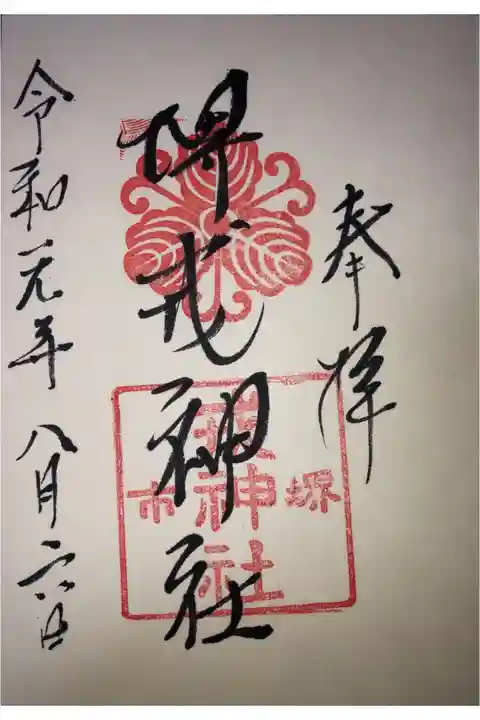 奉拝
堺戎神社
堺
神社
市
令和元年 八月二六日